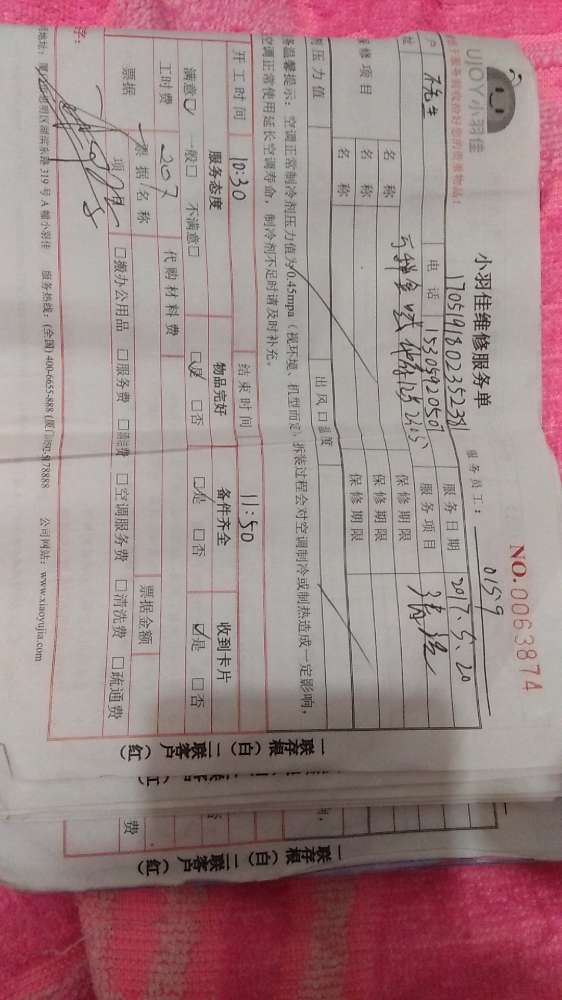 UJOY小羽佳
小羽佳维修服务单
NO.0063874
服务员工： 0159
17051918023523811
服务日期 2017.5.20
电话 15305920501
服务项目 清洗
修项目
名称
保修期限
名称
保修期限
名称
保修期限
压力值
出风口温度
温馨提示：空调正常制冷剂压力值为0.45mpa（视环境、机型而定，拆装过程会对空调制冷或制热造成一定影响，
空调正常使用延长空调寿命，制冷剂不足时请及时补充。
开工时间 10:30 结束时间 11:50
服务态度 物品完好 备件齐全 收到卡片
满意☑ 一般□ 不满意□ □是 □否 □是 □否 ☑是 □否
工时费 207 代购材料费
票据 票据名称 票据金额
项 □搬办公用品 □服务费 □清洁费 □空调服务费 □清洗费 □疏通费
字：
思明区湖滨东路 319 号 A 幢小羽佳 服务热线：(全国) 400-6655-888 公司网站：www.xiaoyujia.com
一联存根（白）二联客户（红）
一联存根（白）二联客户（红）
费